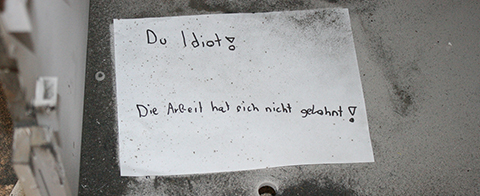 Du Idiot!
Die Arbeit hat sich nicht gelohnt!